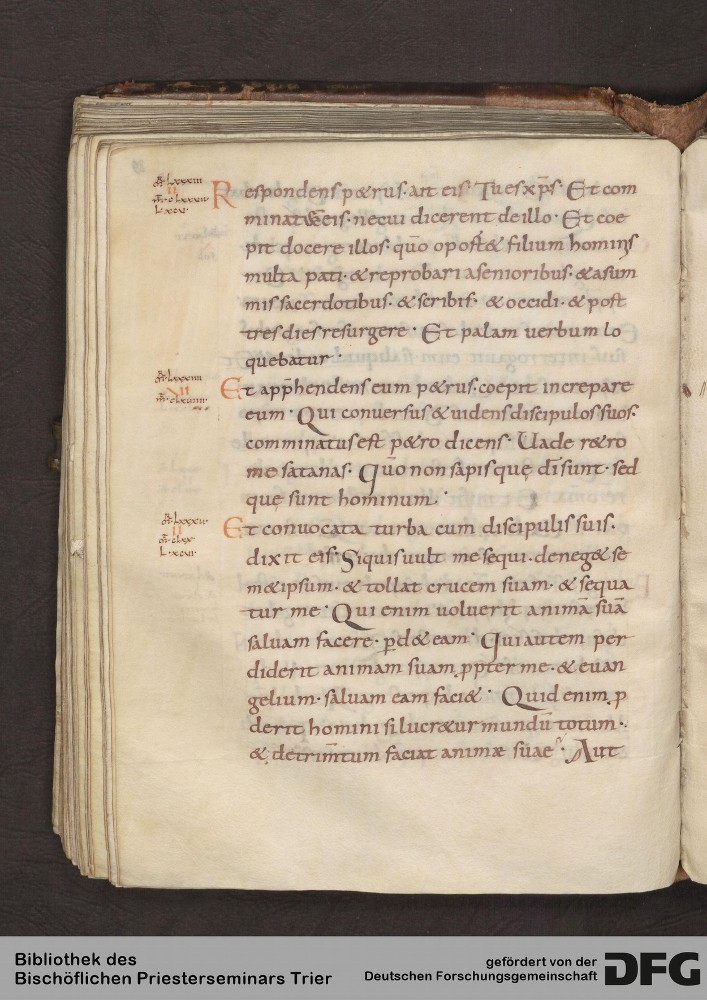 Respondens p&rus· ait eis· Tu es xp̄s· Et com
minat' & eis· ne cui dicerent de illo· Et coe
pit docere illos· qūo oport& filium hominis
multa pati· & reprobari a senioribus· & a sum
mis sacerdotibus· & scribis· & occidi· & post
tres dies resurgere· Et palam verbum lo
quebatur·
Et app̄hendens eum p&rus· coepit increpare
eum· Qui conversus & uidens discipulos suos·
comminatus est p&ro dicens· Uade r&ro
me satanas· Qūo non sapis quę dī sunt· sed
quę sunt hominum·
Et convocata turba cum discipulis suis·
dixit eis· Si quis uult me sequi· deneg& se
m&ipsum· & tollat crucem suam· & sequa
tur me· Qui enim uoluerit animā suā
saluam facere· ꝑd& eam· Qui autem per
diderit animam suam ꝓpter me· & euan
gelium· saluam eam faci&· Quid enim ꝓ
derit homini si lucr&ur mundū totum·
& detrim̄tum faciat animæ suae· Aut
Bibliothek des
Bischöflichen Priesterseminars Trier
gefördert von der
Deutschen Forschungsgemeinschaft
DFG